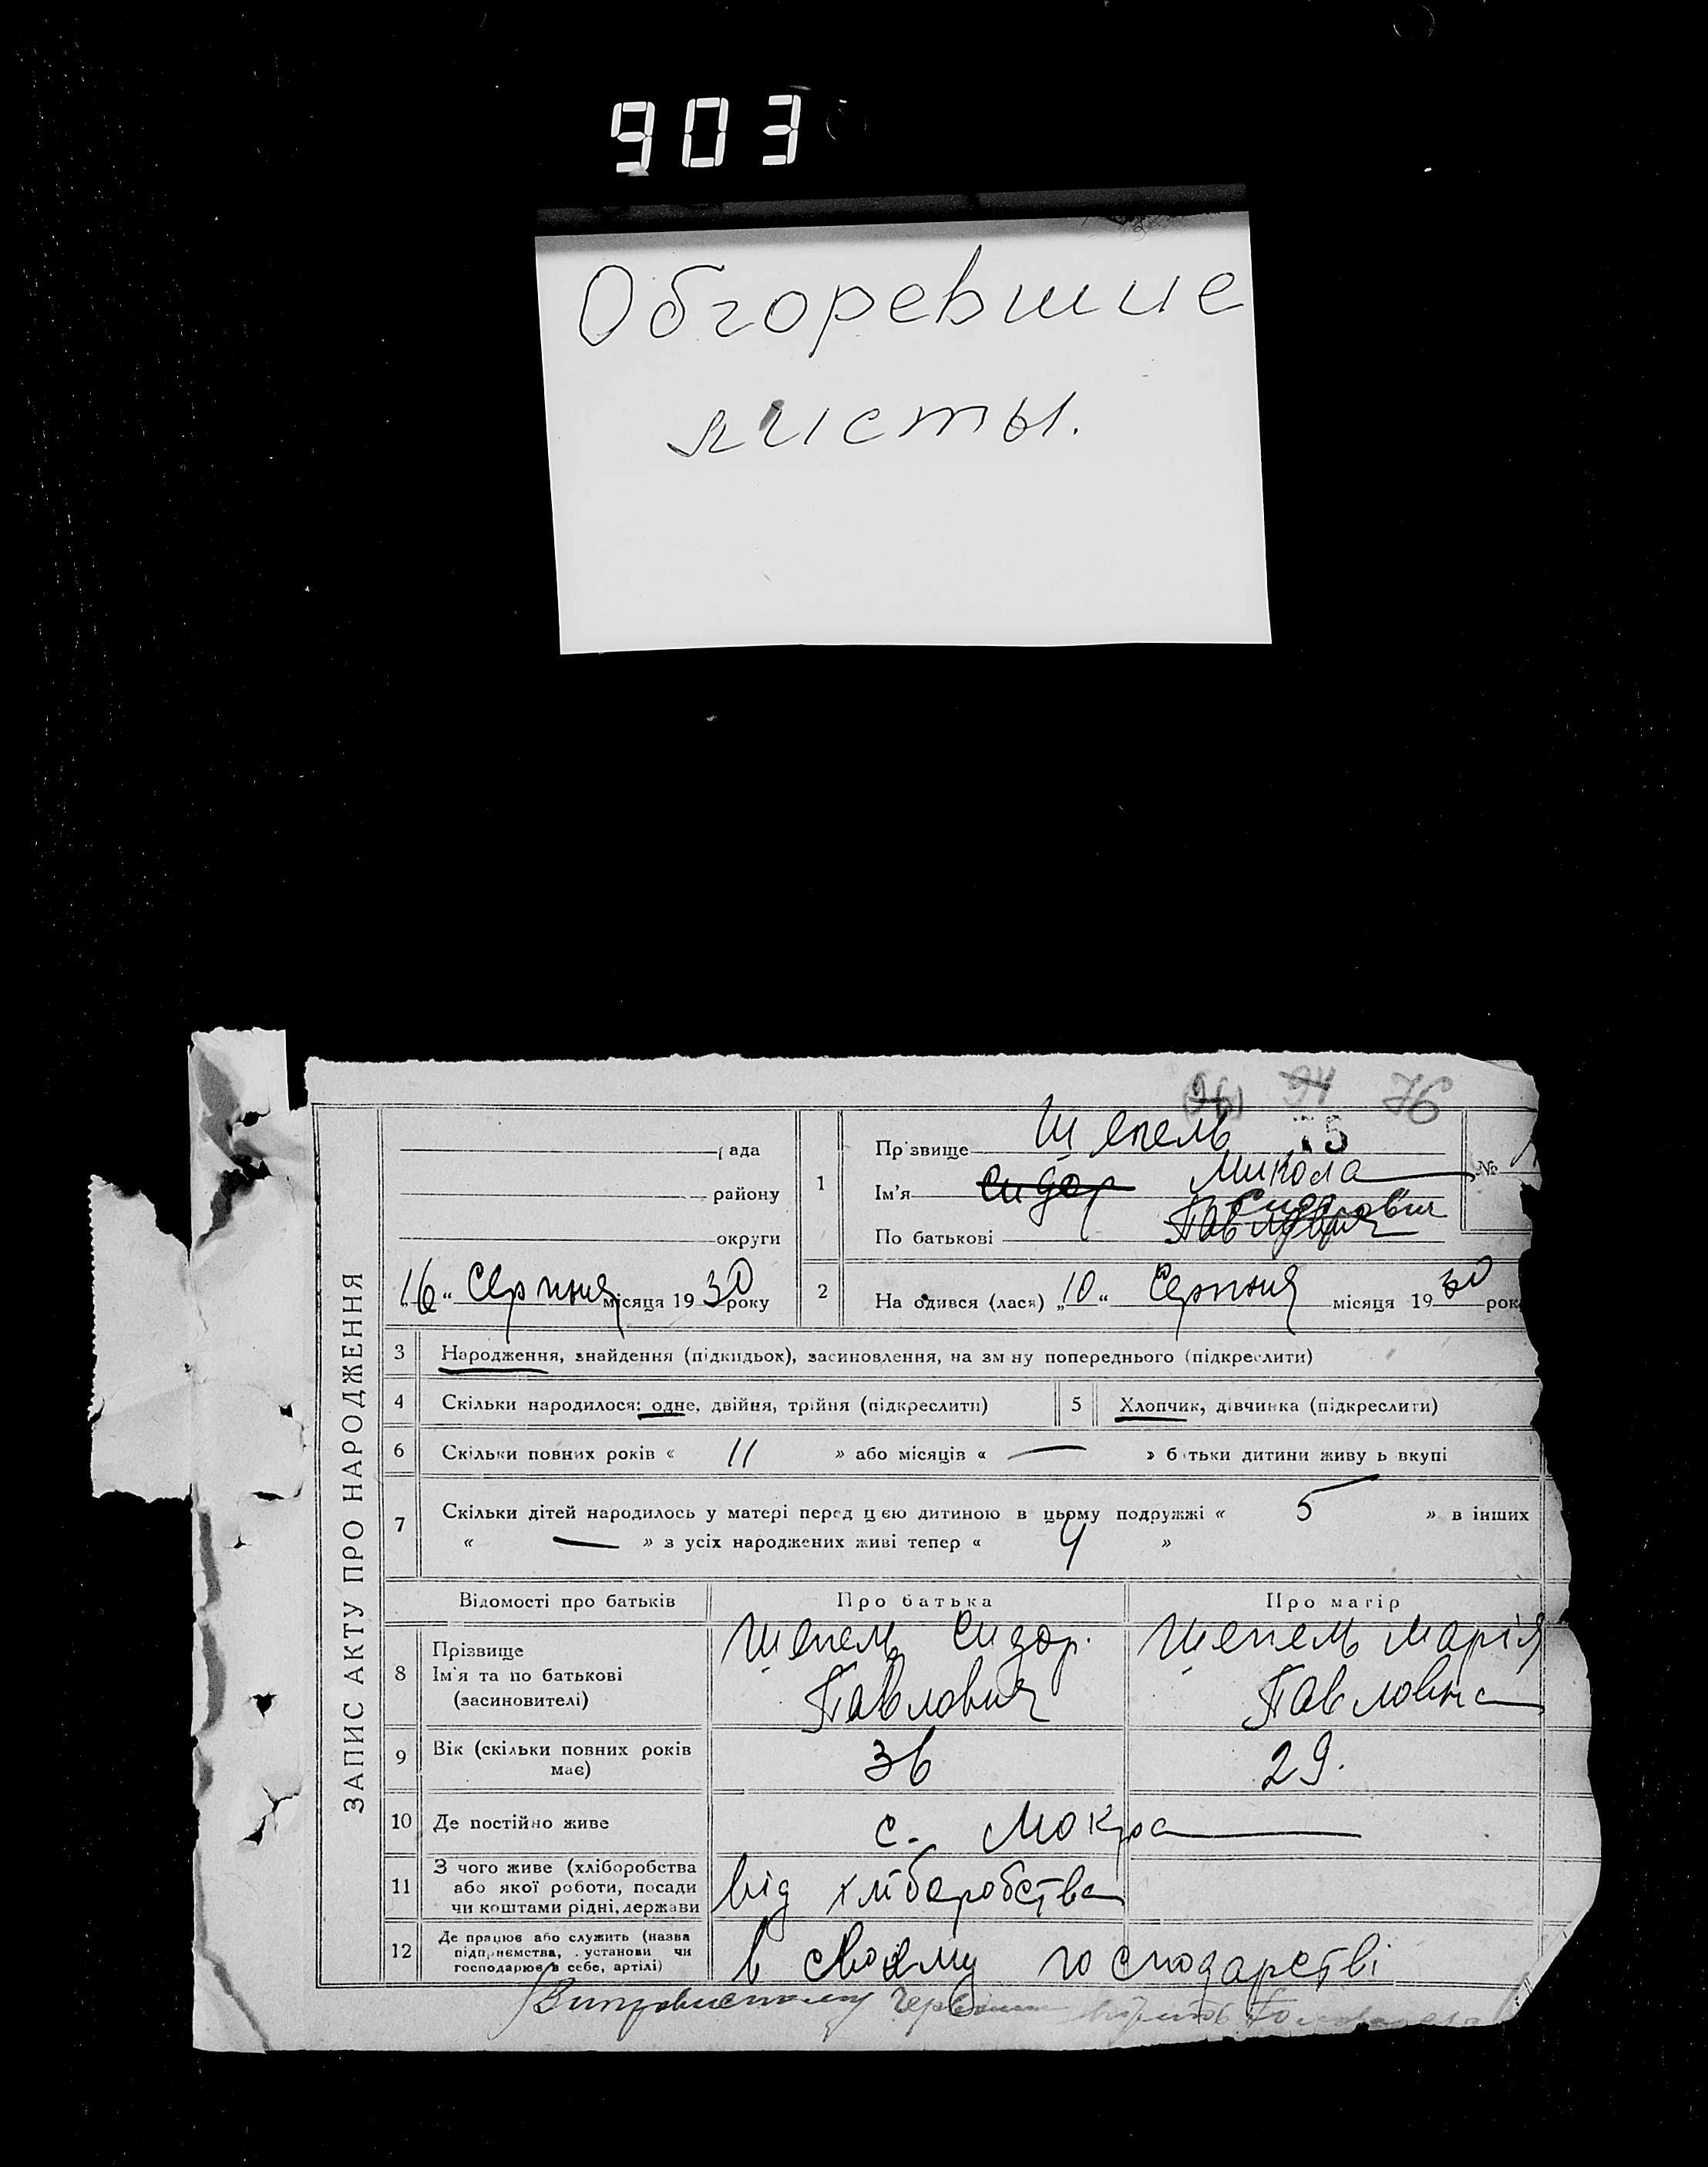 903
Обгоревшие
листы.
(76) 94 76
ЗАПИС АКТУ ПРО НАРОДЖЕННЯ
рада
району
округи
„16“ Серпня місяця 1930 року
1
Прізвище Шепель 75
Ім'я Сидор Микола
Сидорович
По батькові Павлович
№
2
На одився (лася) „10“ Серпня місяця 1930 рок
3 Народження, знайдення (підкидьок), засиновлення, на зм ну попереднього (підкреслити)
4 Скільки народилося: одне, двійня, трійня (підкреслити) 5 Хлопчик, дівчинка (підкреслити)
6 Скільки повних років « 11 » або місяців « — » б тьки дитини живу ь вкупі
7 Скільки дітей народилось у матері перед цією дитиною в цьому подружжі « 5 » в інших
« — » з усіх народжених живі тепер « 4 »
Відомості про батьків Про батька Про матір
8 Прізвище
Ім'я та по батькові
(засиновителі)
Шепель Сидор.
Павлович
Шепель Марія
Павловна
9 Вік (скільки повних років
має)
36 29.
10 Де постійно живе с. Мокра
11 З чого живе (хліборобства
або якої роботи, посади
чи коштами рідні, держави
від хліборобства
12 Де працює або служить (назва
підприємства, установи чи
господарює в себе, артілі)
в своему господарстві